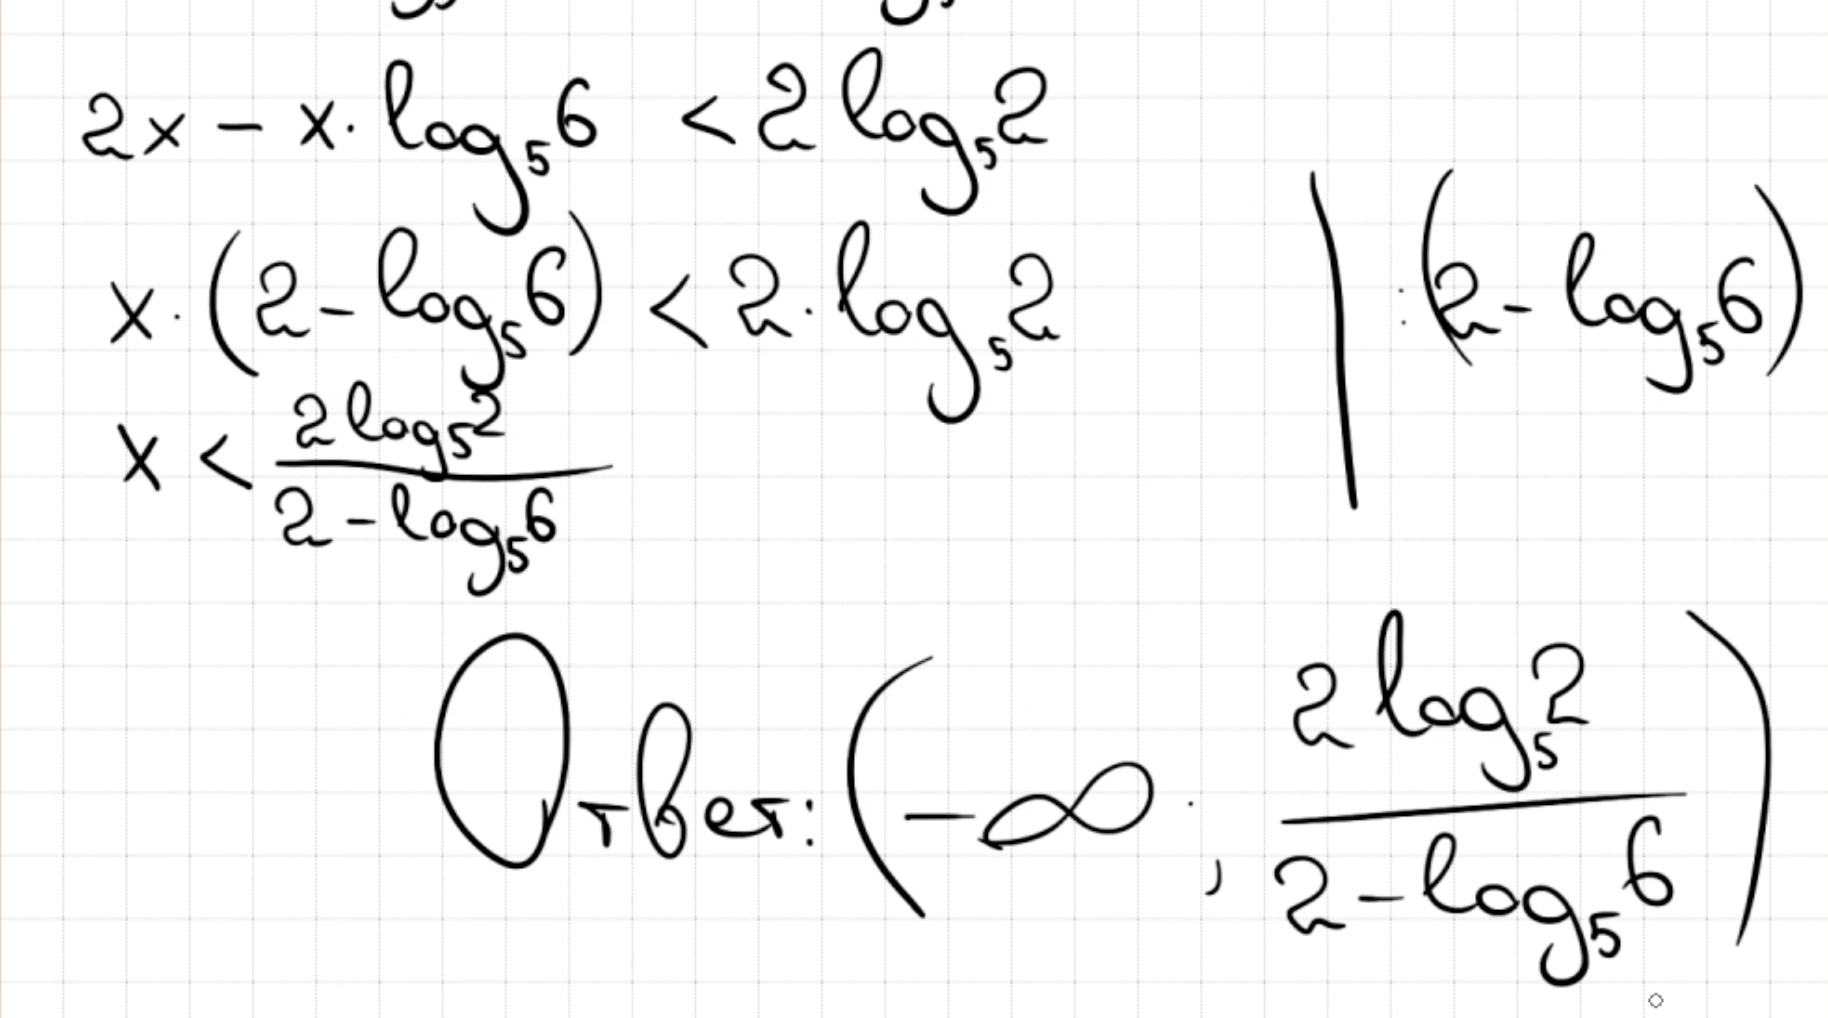 2x - x · log₅6 < 2 log₅2
x · (2 - log₅6) < 2 · log₅2 | : (2 - log₅6)
x < 2 log₅2 / 2 - log₅6
Ответ: (-∞ ; 2 log₅2 / 2 - log₅6)